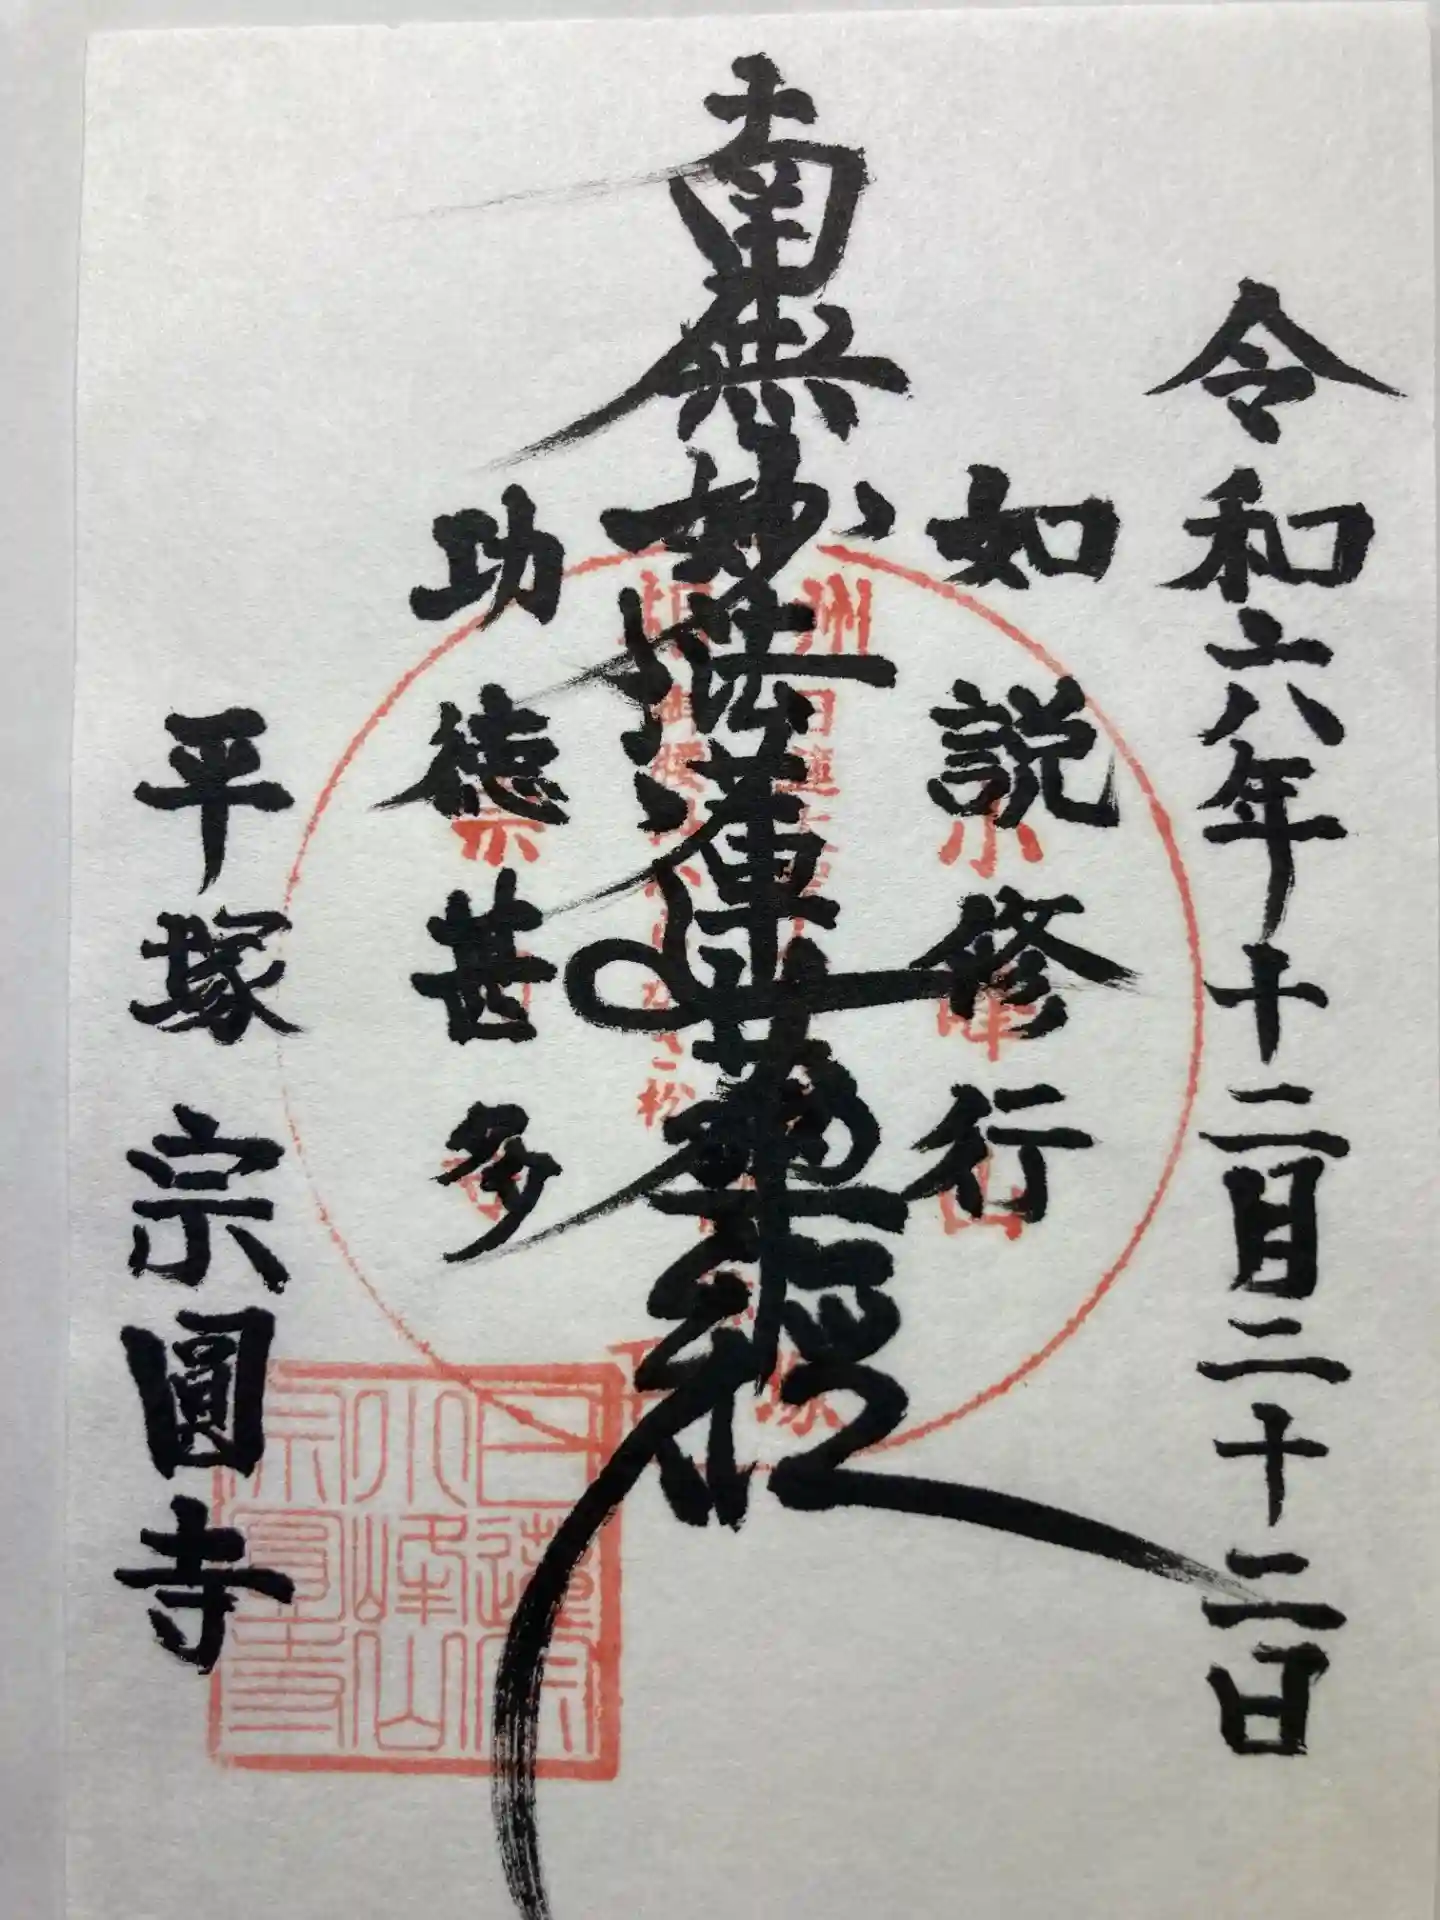 令和六年十二月二十二日
如説修行
南無妙法蓮華経
功徳甚多
平塚 宗圓寺
小峰山
日蓮宗
小峰山
宗圓寺